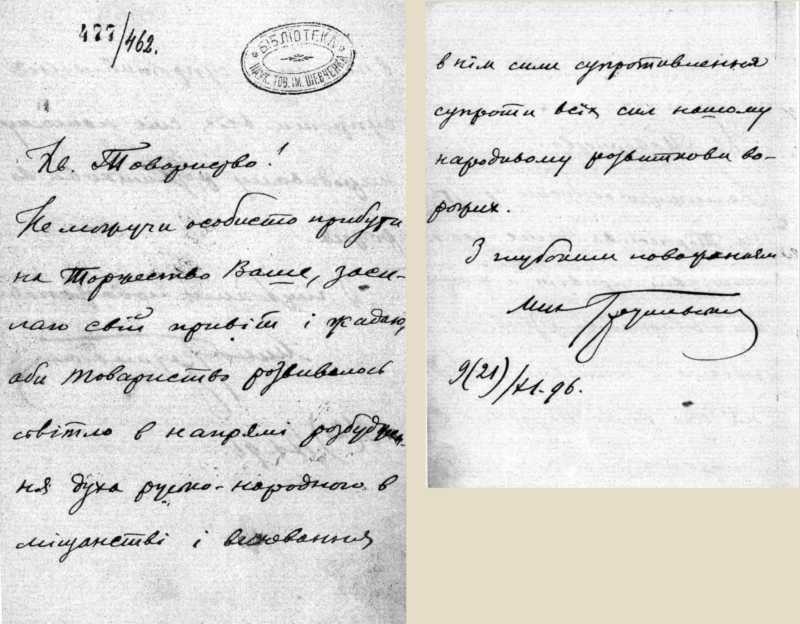 477/462.
БІБЛІОТЕКА
НАУК. ТОВ. ІМ. ШЕВЧЕНКА
Хв. Товариство!
Не могучи особисто прибути
на Торжество Ваше, заси-
лаю свій привіт і жадаю,
аби товариство розвивалось
світло в напрямі розбуджен-
ня духа русько-народного в
міщанстві і
в нім сили супротивлення
супроти всїх сил нашому
народньому розвиткови во-
рожих.
З глубоким поважанєм
Мих Грушевський
9(21)/XI.96.